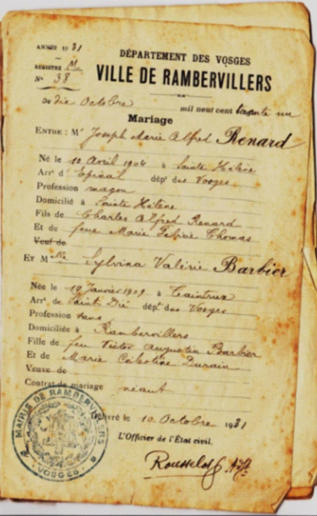 DÉPARTEMENT DES VOSGES
ANNÉE 1931
REGISTRE M
N° 38
VILLE DE RAMBERVILLERS
Du dix Octobre
mil neuf cent trente un
Mariage
ENTRE : Mr Joseph Marie Alfred Renard
Né le 10 Avril 1904 à Sainte Hélène
Arrt d'Epinal dépt des Vosges
Profession maçon
Domicilié à Sainte Hélène
Fils de Charles Alfred Renard
Et de feue Marie Thomas
Veuf de
ET Mlle Sylvina Valérie Barbier
Née le 19 Janvier 1909 à Taintrux
Arrt de Saint Dié dépt des Vosges
Profession sans
Domiciliée à Rambervillers
Fille de feu Victor Augustin Barbier
Et de Marie Célestine Durain
Veuve de
Contrat de mariage néant
Délivré le 10 Octobre 1931
L'Officier de l'État civil.
MAIRIE DE RAMBERVILLERS
(VOSGES)